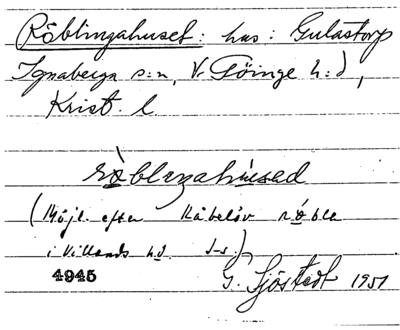 Röblingahuset: hus: Gulastorp
Ignaberga s:n, V. Göinge h:d,
Krist. l.
röblengahúsad
(Möjl. efter Råbelöv röble
i Villands h.d. )
4945 G. Sjöstedt 1951